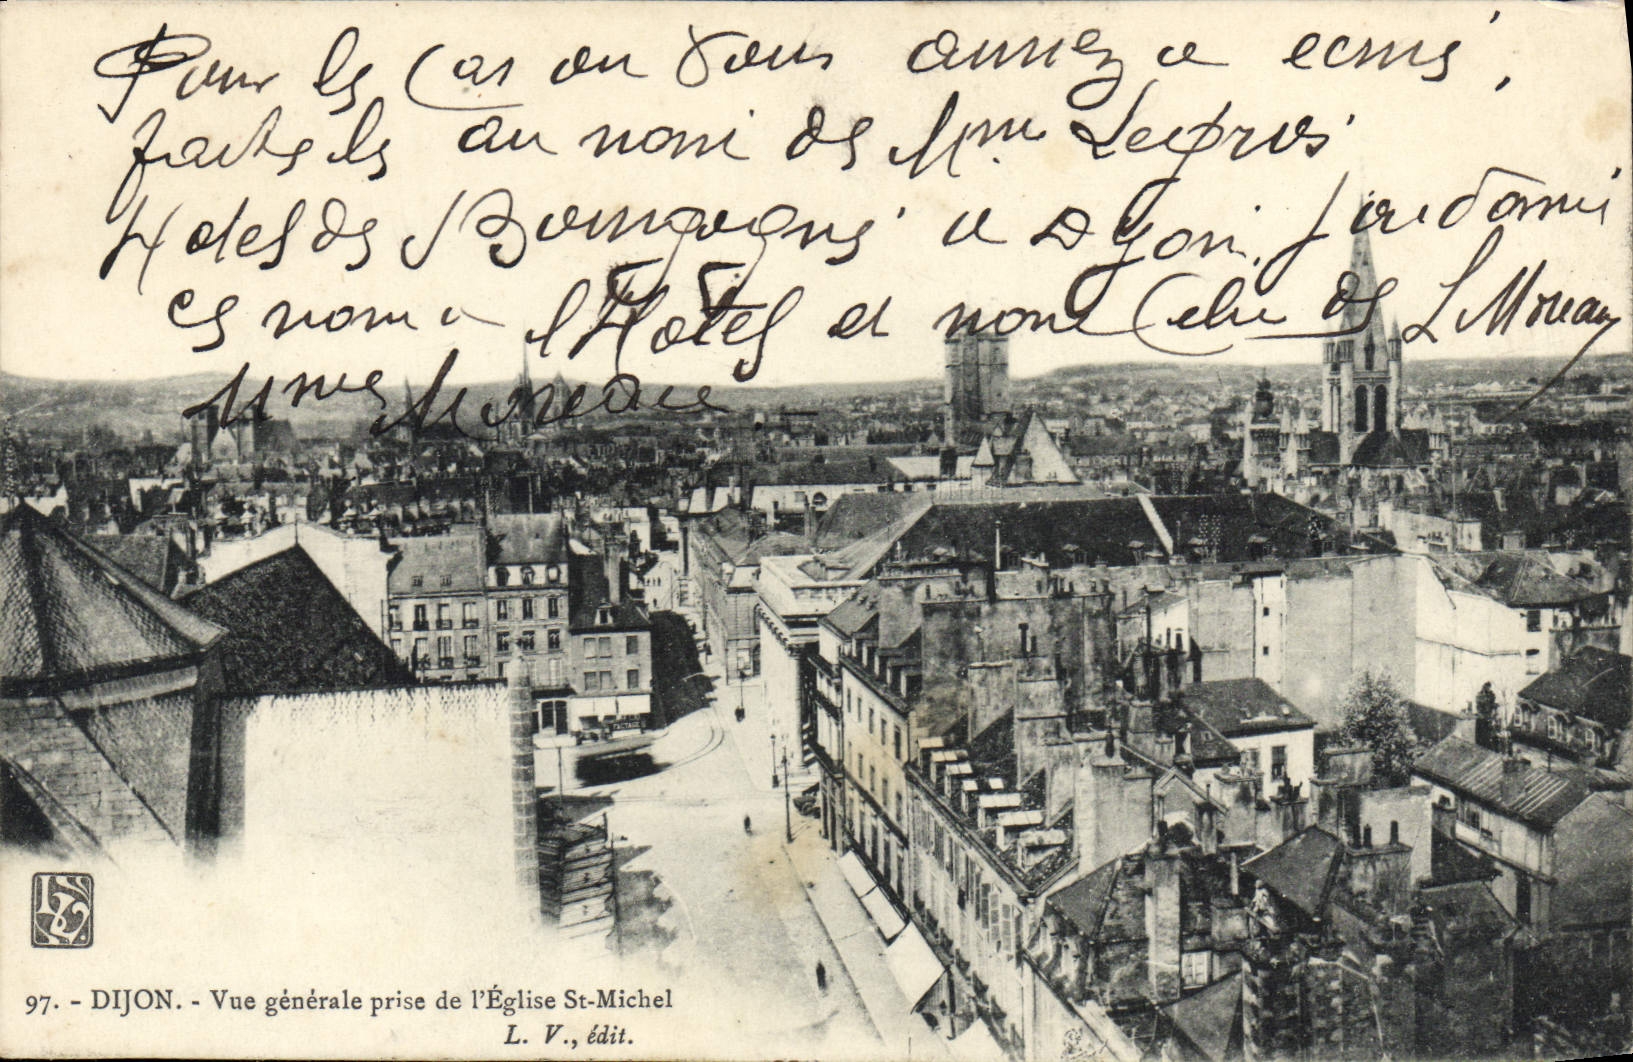 Pour le Cas ou Vous auriez a ecrire,
faite le au nom de Mme
Hotel de Bourgogne a Dijon,
ce nom a l'Hotel et non Celui de L Moreau
Mme Moreau
97. - DIJON. - Vue générale prise de l'Église St-Michel
L. V., édit.